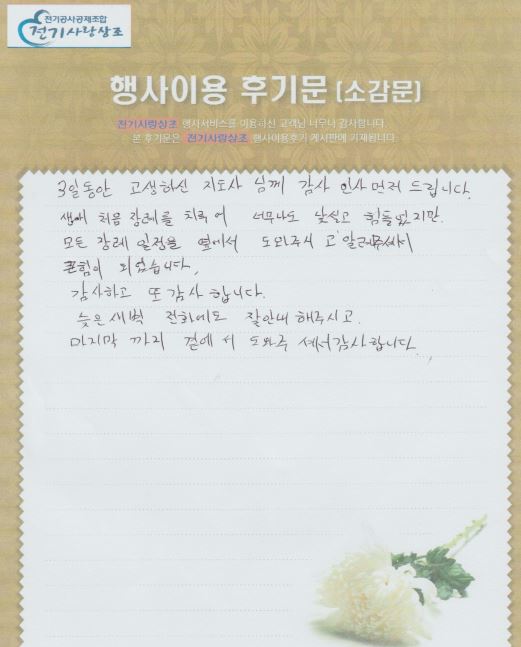 전기공사공제조합
전기사랑상조
행사이용 후기문 [소감문]
전기사랑상조 행사서비스를 이용하신 고객님 너무나 감사합니다
본 후기문은 전기사랑상조 행사이용후기 게시판에 기재됩니다.
3일동안 고생하신 지도사 님께 감사 인사 먼저 드립니다.
생애 처음 장례를 치루어 너무나도 낯설고 힘들었지만.
모든 장례 일정을 옆에서 도와주시고 알려주셔서
큰힘이 되었습니다,
감사하고 또 감사 합니다.
늦은 새벽 전화에도 잘안내 해주시고.
마지막 까지 곁에서 도와주셔서감사합니다.